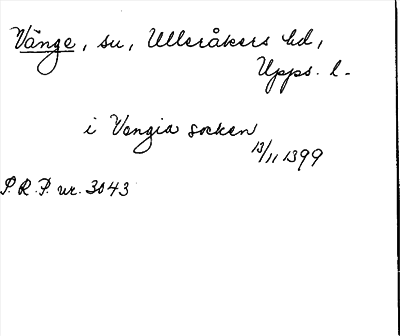 Vänge, sn, Ulleråkers hd,
Upps. l.
i Vangia socken
13/11 1399
P.R.P. nr. 3043